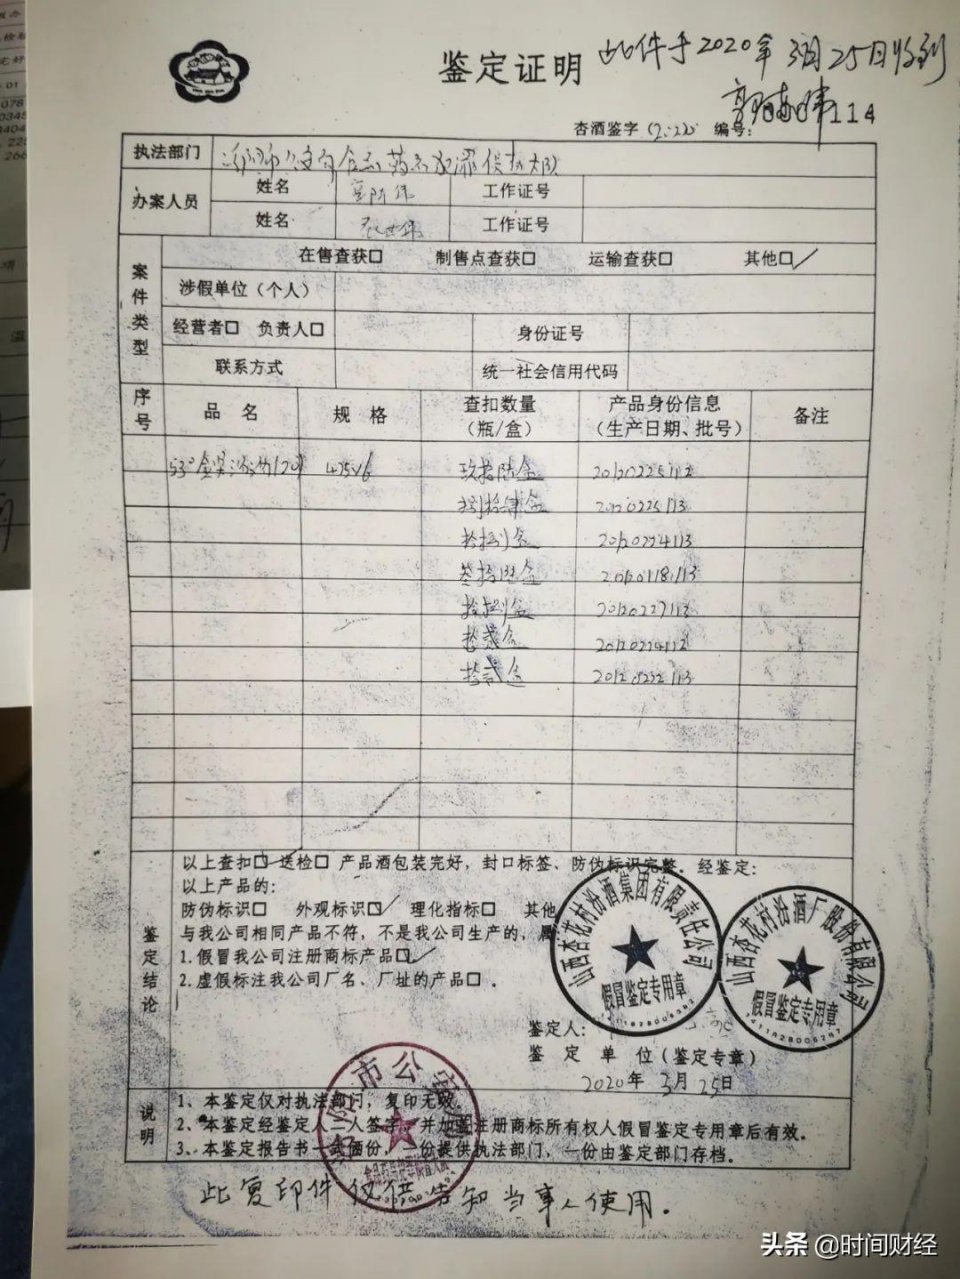 鉴定证明
此件于2020年3月25日收到
杏酒鉴字
编号:
114
执法部门
办案人员
姓名
工作证号
姓名
工作证号
案件类型
在售查获□ 制售点查获□ 运输查获□ 其他□
涉假单位(个人)
经营者□ 负责人□
身份证号
联系方式
统一社会信用代码
序号
品 名
规 格
查扣数量
(瓶/盒)
产品身份信息
(生产日期、批号)
备注
475×6
玖拾陆盒
20120225112
20120225113
20120224113
20120118113
20120227112
拾贰盒
20120224112
拾贰盒
20120222113
鉴定结论
以上查扣□ 送检□ 产品酒包装完好,封口标签、防伪标识完整。经鉴定:
以上产品的:
防伪标识□ 外观标识□ 理化指标□ 其他
与我公司相同产品不符,不是我公司生产的,属
1.假冒我公司注册商标产品□
2.虚假标注我公司厂名、厂址的产品□。
山西杏花村汾酒集团有限责任公司
假冒鉴定专用章
山西杏花村汾酒厂股份有限公司
假冒鉴定专用章
鉴定人:
鉴 定 单 位(鉴定专章)
2020年3月25日
说明
1、本鉴定仅对执法部门,复印无效。
2、本鉴定经鉴定人二人签字,并加盖注册商标所有权人假冒鉴定专用章后有效。
3、本鉴定报告书一式两份,一份提供执法部门,一份由鉴定部门存档。
市公安局
此复印件仅供告知当事人使用。
头条 @时间财经